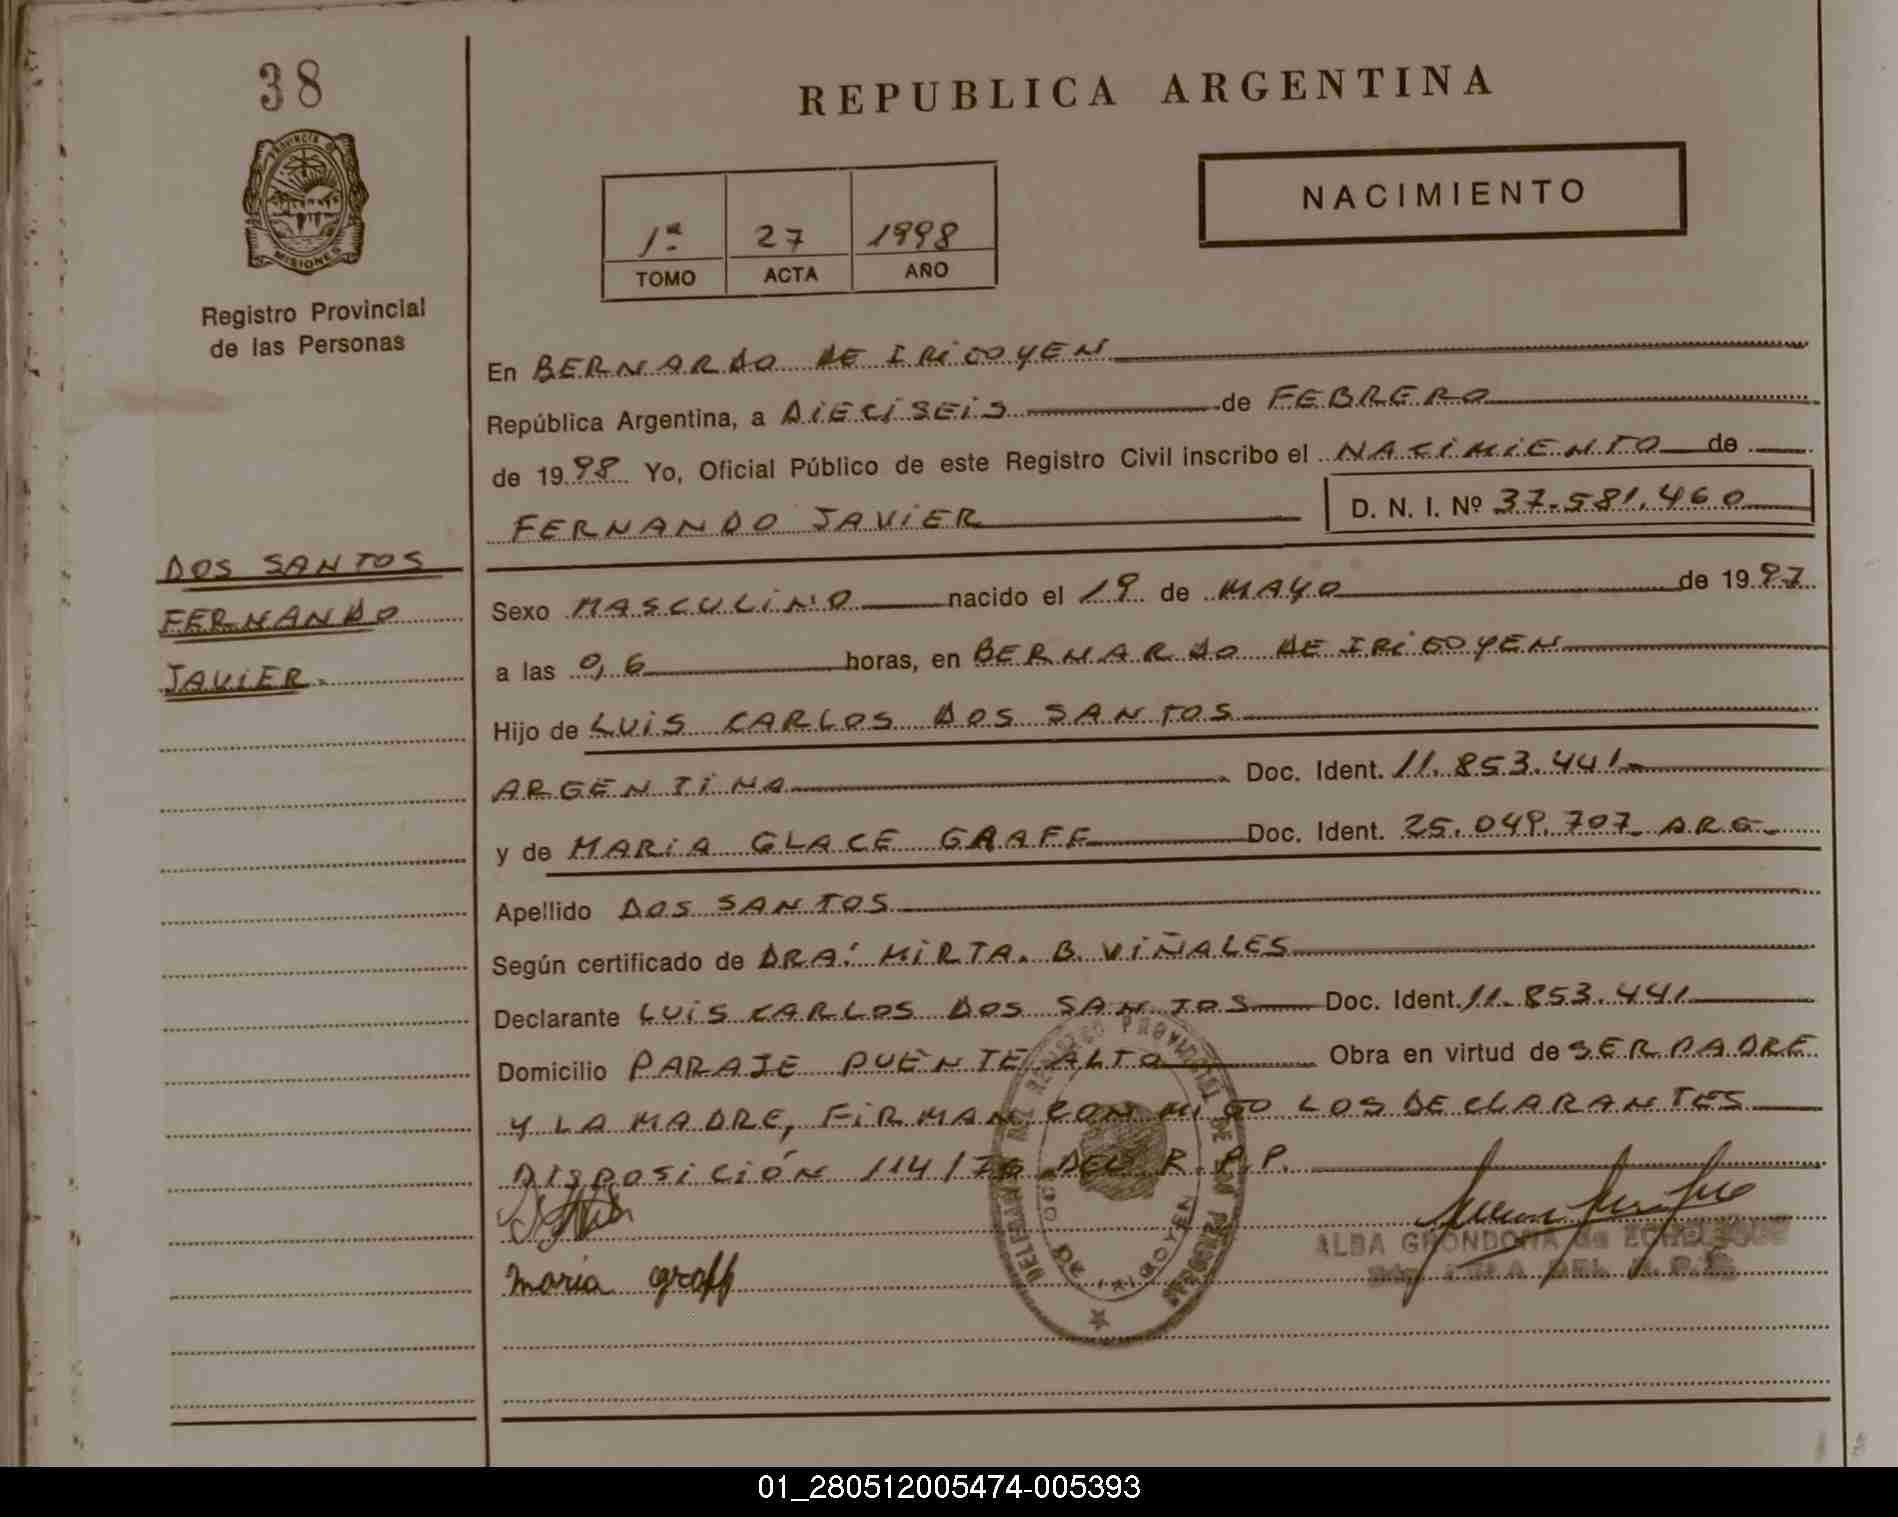 38
REPUBLICA ARGENTINA
PROVINCIA DE
MISIONES
Registro Provincial
de las Personas
1ª 27 1998
TOMO ACTA AÑO
NACIMIENTO
En BERNARDO DE IRIGOYEN
República Argentina, a DIECISEIS de FEBRERO
de 1998 Yo, Oficial Público de este Registro Civil inscribo el NACIMIENTO de
FERNANDO JAVIER D. N. I. Nº 37.581.460
DOS SANTOS
FERNANDO
JAVIER.
Sexo MASCULINO nacido el 19 de MAYO de 1997
a las 0,6 horas, en BERNARDO DE IRIGOYEN
Hijo de LUIS CARLOS DOS SANTOS
ARGENTINA Doc. Ident. 11.853.441
y de MARIA GLACE GRAFF Doc. Ident. 25.049.707 ARG.
Apellido DOS SANTOS
Según certificado de DRA: MIRTA. B. VIÑALES
Declarante LUIS CARLOS DOS SANTOS Doc. Ident. 11.853.441
Domicilio PARAJE PUENTE ALTO Obra en virtud de SER PADRE
Y LA MADRE, FIRMAN CON MIGO LOS DECLARANTES
DISPOSICIÓN 114/76 DEL R.P.P.
maria graff
ALBA GRONDONA de
01_280512005474-005393